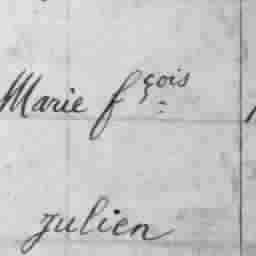 Marie fçois
julien